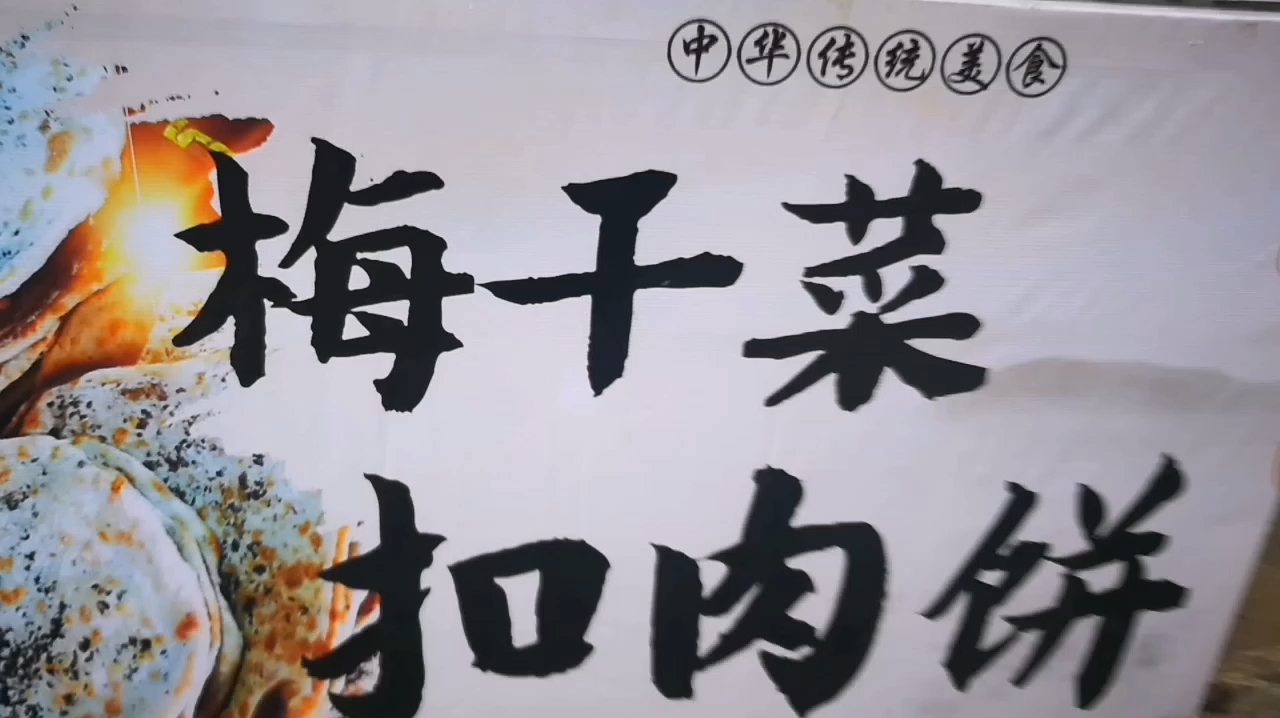 中华传统美食
梅干菜
扣肉饼